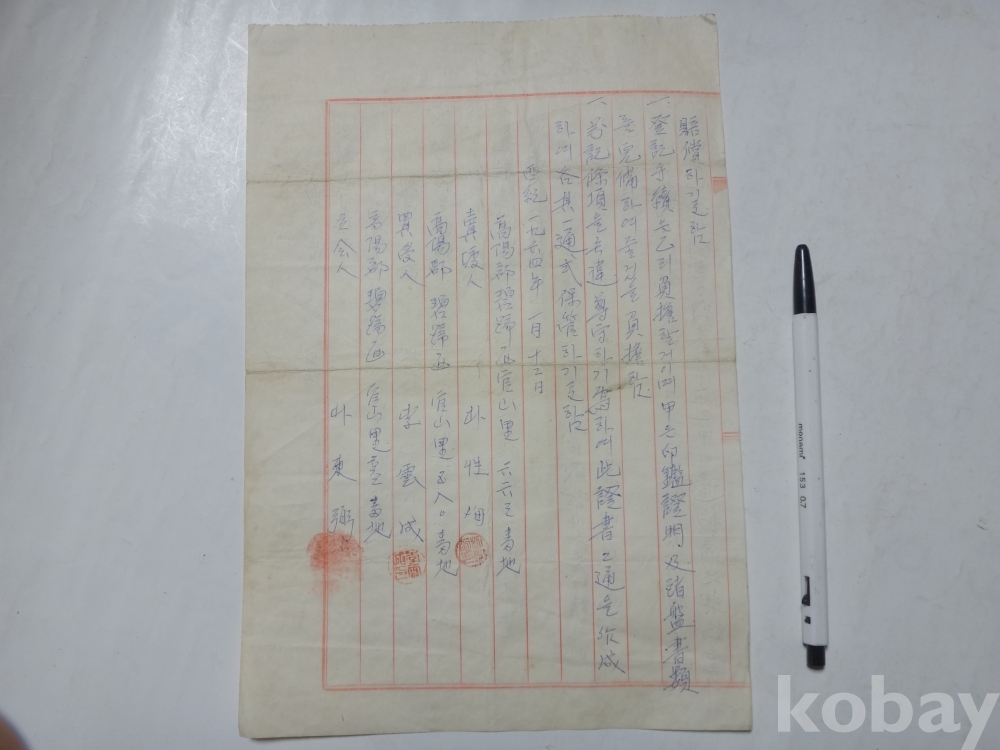 賠償하기로함
一、登記手續은乙이負擔할거이며甲은印鑑證明及諸般書類
를完備하여줄것을負擔함
一、前記條項을無違尊守하기爲하여此證書二通을作成
하여各其一通式保管하기로함
西紀一九六四年 一月十二日
高陽郡碧蹄面官山里 六六三番地
賣渡人 朴性
高陽郡 碧蹄面 官山里 五八〇番地
買受人 李雲成
高陽郡 碧蹄面 官山里 番地
立会人 朴東弼
monami 153 0.7
kobay